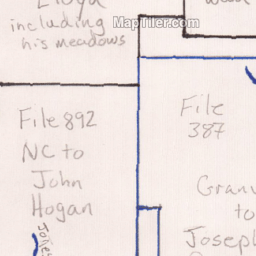 Lloyd
including
his meadows
MapTiler.com
File 892
NC to
John
Hogan
File
387
to
Joseph